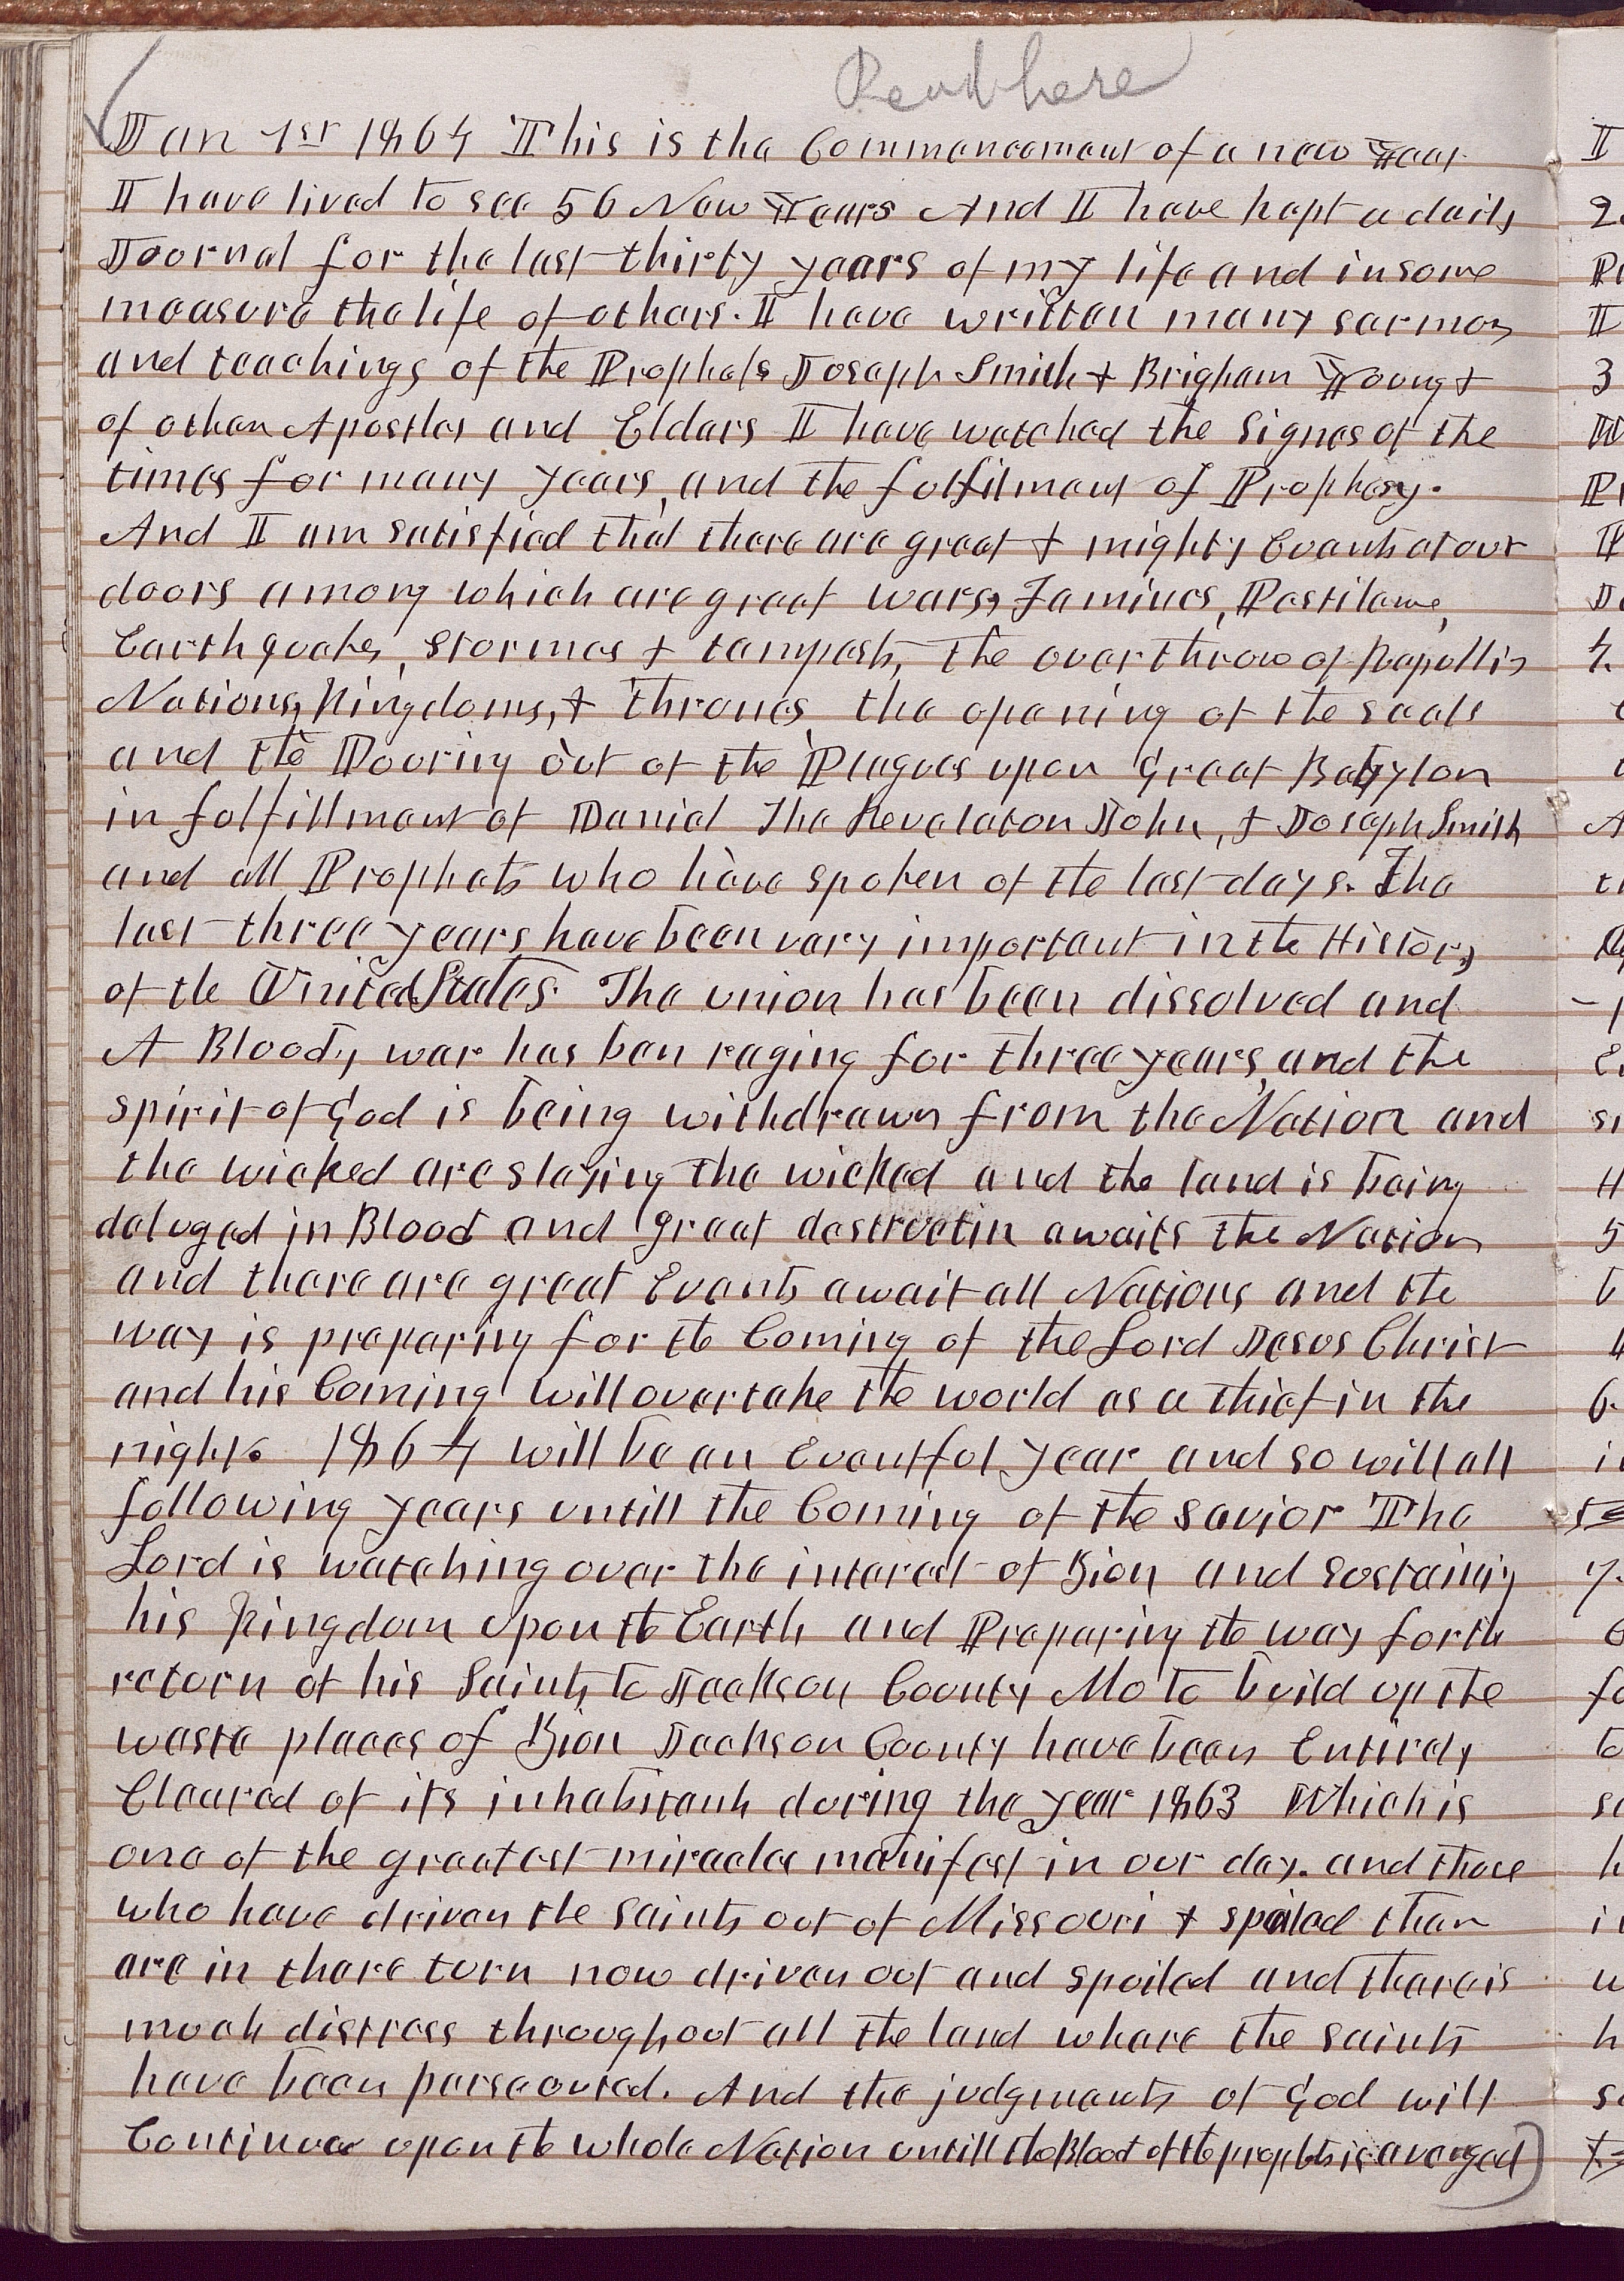 Read here
Jan 1st 1864 This is the Commencement of a new Year
I have lived to see 56 New Years And I have kept a daily
Journal for the last thirty years of my life and in some
measure the life of others. I have written many sermons
and teachings of the Prophets Joseph Smith & Brigham Young &
of other Apostles and Elders I have watched the Signes of the
times for many years, and the fulfilment of Prophesy.
And I am satisfied that there are great & mighty Events at our
doors among which are great wars, Famines, Pestilence,
Earthquakes, stormes & tempests, the overthrow of Republics
Nations, Kingdoms, & thrones the opening of the seals
and the Pouring out of the Plagues upon Great Babylon
in fulfillment of Daniel The Revelator John, & Joseph Smith
and all Prophets who have spoken of the last days. The
last three years have been very important in the History
of the United States. The union has been dissolved and
A Bloody war has ben raging for three years, and the
spirit of God is being withdrawn from the Nation and
the wicked are slaying the wicked and the land is being
deluged in Blood and great destructin awaits the Nation
and there are great Events await all Nations and the
way is preparing for the Coming of the Lord Jesus Christ
and his Coming will overtake the world as a thief in the
night. 1864 will be an Eventful year and so will all
following years untill the Coming of the Savior The
Lord is watching over the interest of Zion and sustaining
his Kingdom upon the Earth and Preparing the way for the
return of his Saints to Jackson County Mo to build up the
waste places of Zion Jackson County have been Entirely
Cleared of its inhabitants during the year 1863 Which is
one of the greatest miracles manifest in our day. and those
who have driven the saints out of Missouri & spoiled them
are in there turn now driven out and spoiled and there is
much distress throughout all the land where the saints
have been persecuted. And the judgments of God will
Continue upon the whole Nation untill the Blood of the prophets is avenged